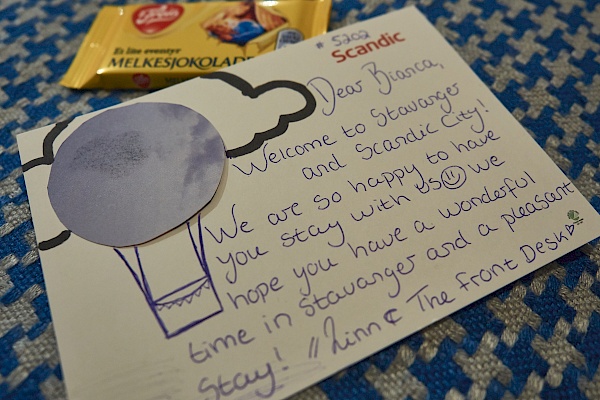 Freia
Et lite eventyr
MELKESJOKOLADE
# 5202
Scandic
Dear Bianca,
Welcome to Stavanger
and Scandic City!
We are so happy to have
you stay with us we
hope you have a wonderful
time in Stavanger and a pleasant
stay! // Linn & The Front Desk